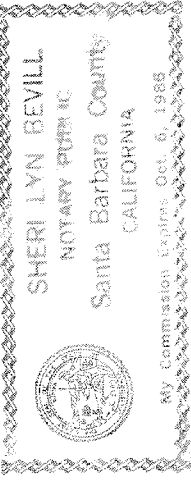 SHERI LYN BEVILL
NOTARY PUBLIC
Santa Barbara County
CALIFORNIA
My Commission Expires Oct. 6, 1986